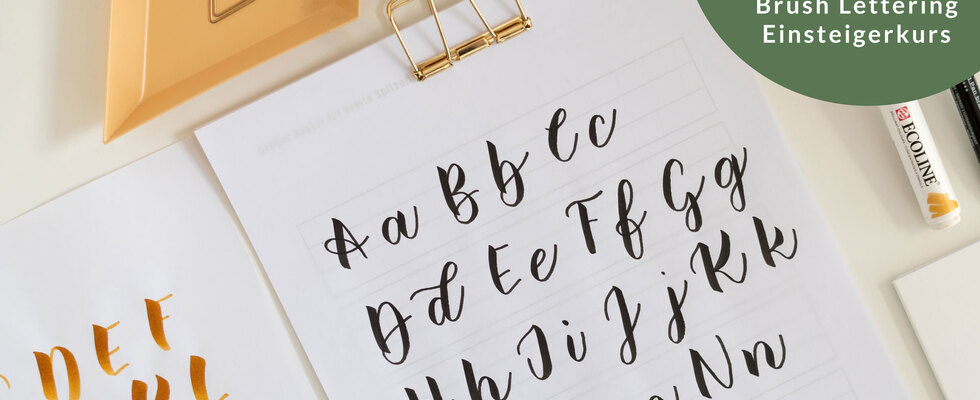 Brush Lettering
Einsteigerkurs
ECOLINE
Aa Bb Cc
Dd Ee Ff Gg
Hh Ii Jj Kk
Nn
D E F